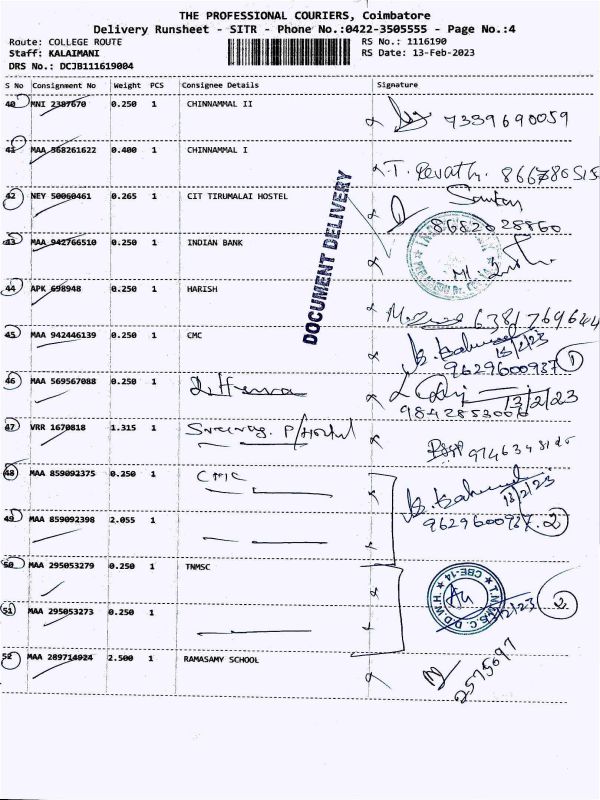 THE PROFESSIONAL COURIERS, Coimbatore
Delivery Runsheet - SITR - Phone No.:0422-3505555 - Page No.:4
Route: COLLEGE ROUTE RS No.: 1116190
Staff: KALAIMANI RS Date: 13-Feb-2023
DRS No.: DCJB111619004
S No Consignment No Weight PCS Consignee Details Signature
40 MNI 2387670 0.250 1 CHINNAMMAL II 7339690059
41 MAA 568261622 0.400 1 CHINNAMMAL I T. Revathi. 866780515
42 NEY 50060461 0.265 1 CIT TIRUMALAI HOSTEL
8682028860
43 MAA 942766510 0.250 1 INDIAN BANK
DOCUMENT DELIVERY
44 APK 698948 0.250 1 HARISH 6381769644
45 MAA 942446139 0.250 1 CMC 13/2/23
9629600937 1
46 MAA 569567088 0.250 1 13/2/23
9842853006
47 VRR 1670818 1.315 1 P/Hostel
48 MAA 859092375 0.250 1 CMC 13/2/23
49 MAA 859092398 2.055 1 9629600937 2
50 MAA 295053279 0.250 1 TNMSC
CBE-14
51 MAA 295053273 0.250 1 2
52 MAA 289714924 2.500 1 RAMASAMY SCHOOL
2575697